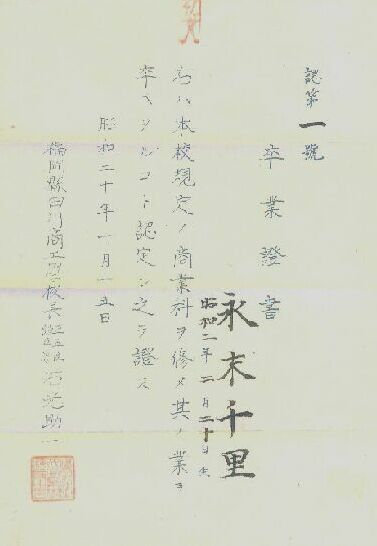 認第一號
卒業證書
永末千里
昭和二年二月二十日生
右ハ本校規定ノ商業科ヲ修メ其ノ業ヲ
卒ヘタルコトヲ認定シ之ヲ證ス
昭和二十年一月一五日
福岡縣田川商工學校長